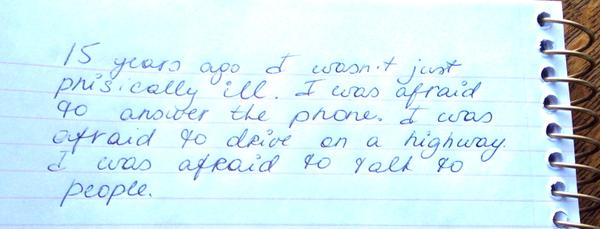 15 years ago I wasn't just
phisically ill. I was afraid
to answer the phone. I was
afraid to drive on a highway.
I was afraid to talk to
people.